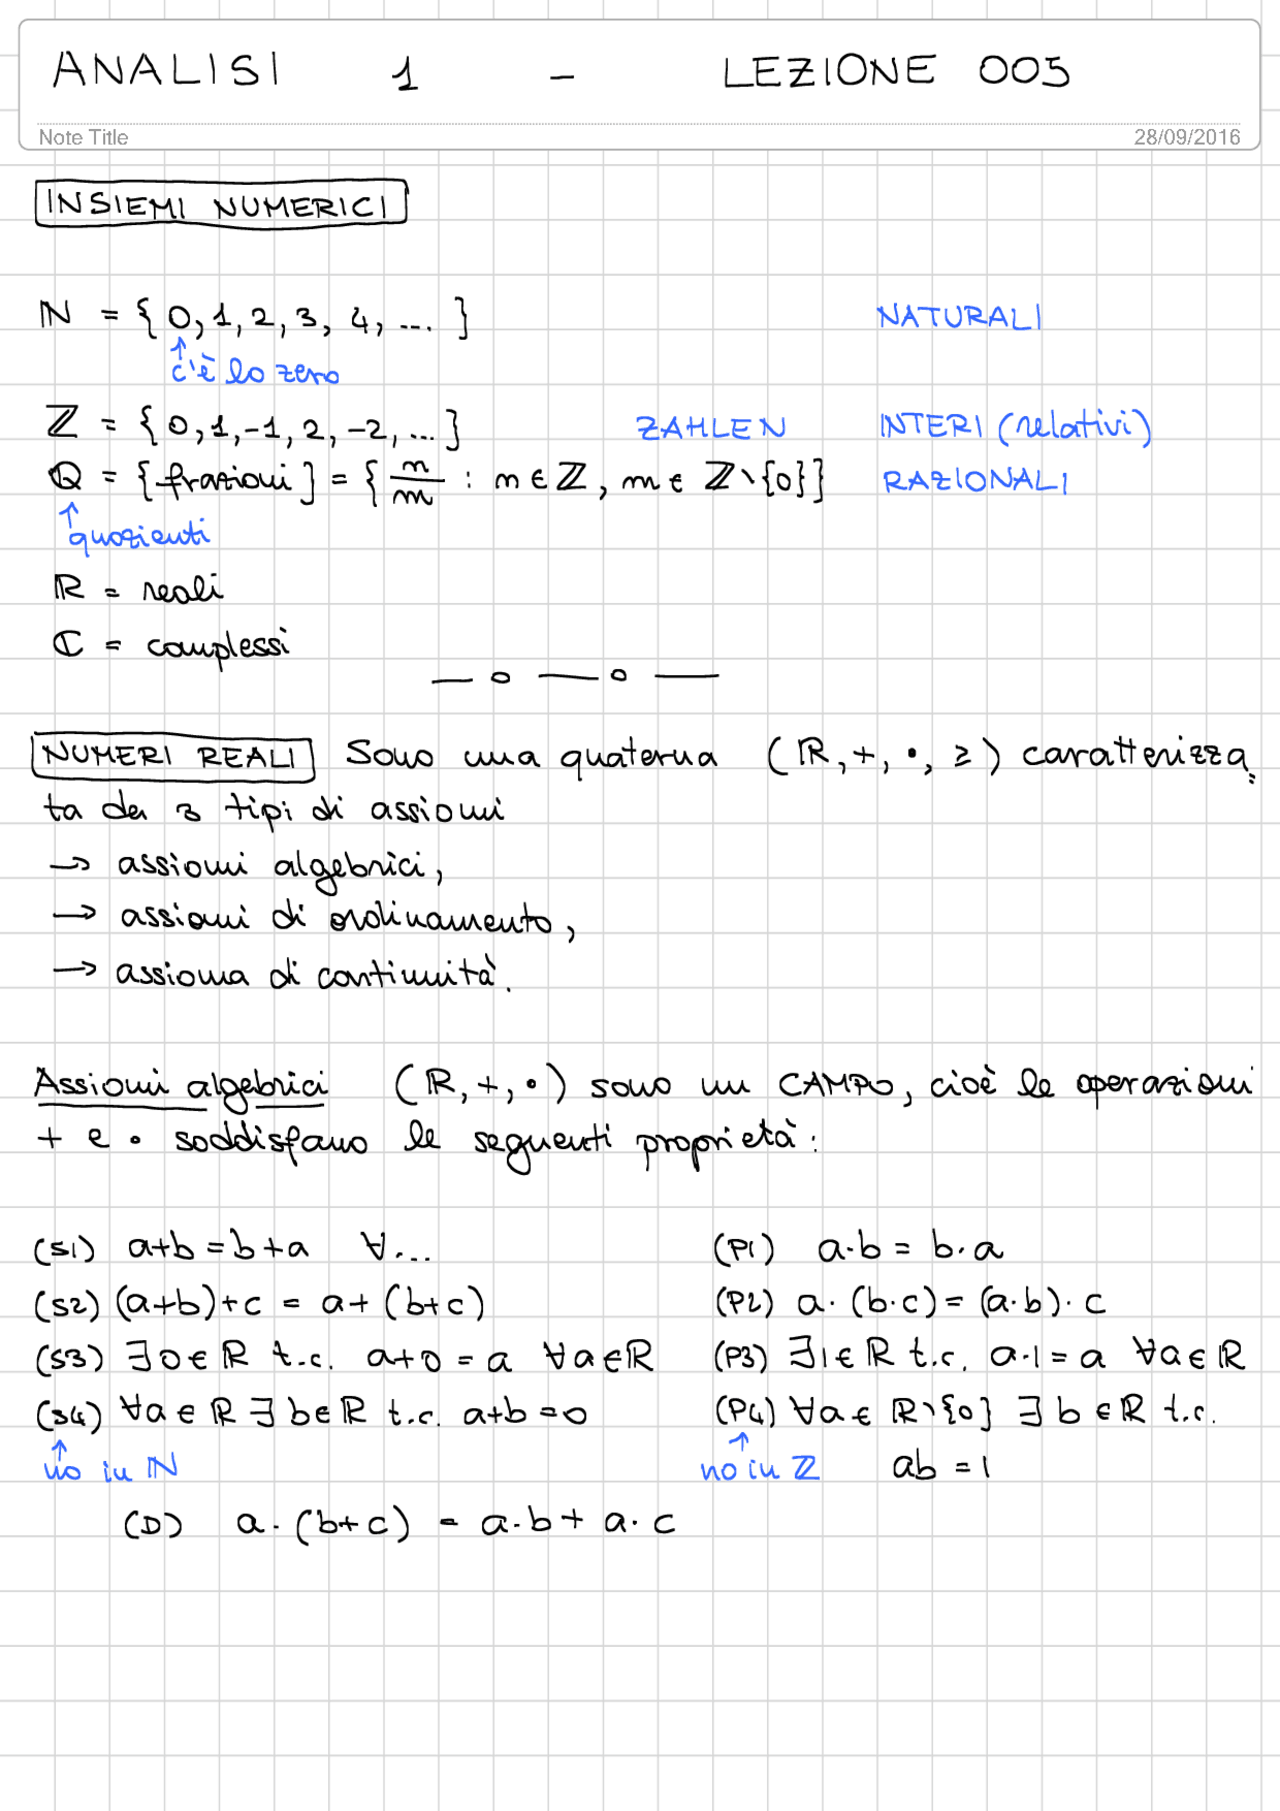 ANALISI 1 - LEZIONE 005
Note Title 28/09/2016
INSIEMI NUMERICI
ℕ = { 0, 1, 2, 3, 4, ... } NATURALI
↑
c'è lo zero
ℤ = { 0, 1, -1, 2, -2, ... } ZAHLEN INTERI (relativi)
ℚ = { frazioni } = { m/n : m ∈ ℤ, n ∈ ℤ \ {0}} RAZIONALI
↑
quozienti
ℝ = reali
ℂ = complessi
— o — o —
NUMERI REALI Sono una quaterna (ℝ, +, ·, ≥) caratterizza
ta da 3 tipi di assiomi
→ assiomi algebrici,
→ assiomi di ordinamento,
→ assioma di continuità.
Assiomi algebrici (ℝ, +, ·) sono un CAMPO, cioè le operazioni
+ e · soddisfano le seguenti proprietà:
(S1) a+b = b+a ∀... (P1) a·b = b·a
(S2) (a+b)+c = a+(b+c) (P2) a·(b·c) = (a·b)·c
(S3) ∃ 0 ∈ ℝ t.c. a+0 = a ∀a∈ℝ (P3) ∃ 1 ∈ ℝ t.c. a·1 = a ∀a∈ℝ
(S4) ∀a ∈ ℝ ∃ b∈ℝ t.c. a+b = 0 (P4) ∀a ∈ ℝ \ {0} ∃ b ∈ ℝ t.c.
↑ ↑
no in ℕ no in ℤ ab = 1
(D) a·(b+c) = a·b + a·c